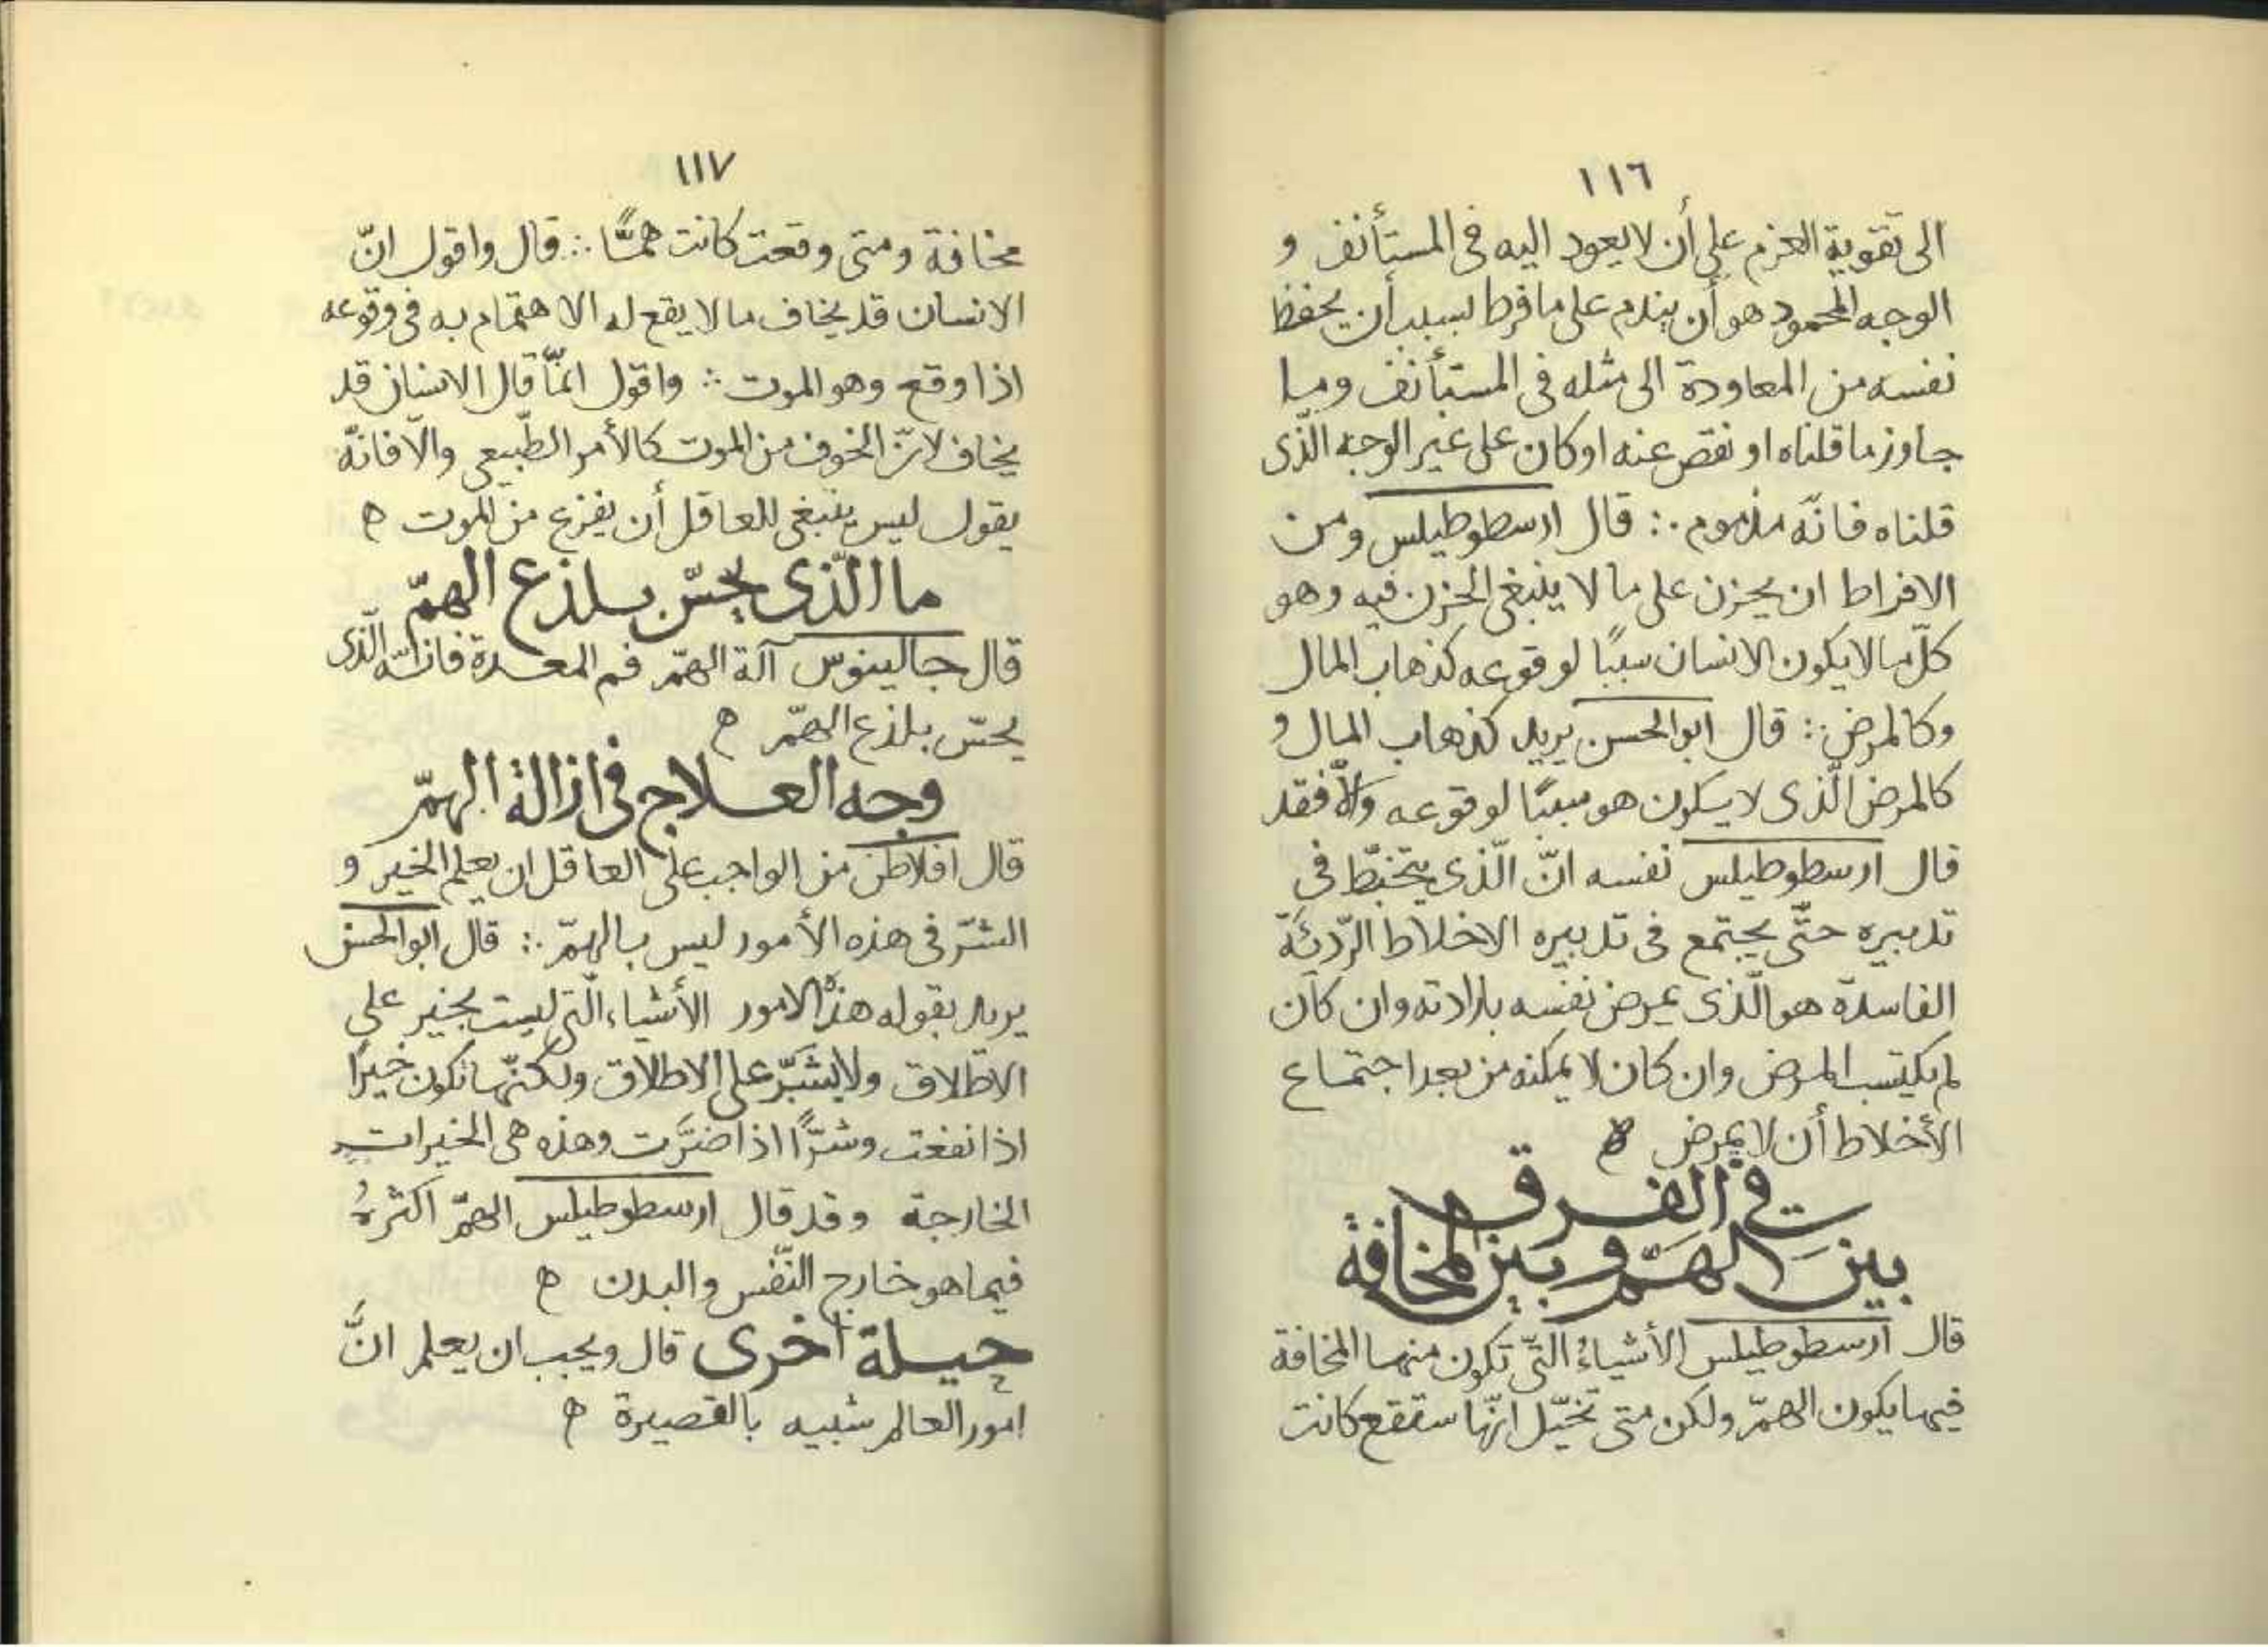 ١١٦
الى تقوية العزم على أن لا يعود اليه فى المستأنف و
الوجه المحمود هو أن يندم على ما فرط لسبب أن يحفظ
نفسه من المعاودة الى مثله فى المستأنف وما
جاوز ما قلناه او نقص عنه او كان على غير الوجه الّذى
قلناه فانّه مذموم ∴ قال ارسطوطيلس ومن
الافراط ان يحزن على ما لا ينبغى الحزن فيه وهو
كلّ ما لا يكون الانسان سببًا لوقوعه كذهاب المال
وكالمرض ∴ قال ابوالحسن يريد كذهاب المال و
كالمرض الّذى لا يكون هو سببًا لوقوعه والّا فقد
قال ارسطوطيلس نفسه انّ الّذى يتخبّط فى
تدبيره حتّى يجتمع فى تدبيره الاخلاط الرّديّة
الفاسدة هو الّذى يمرض نفسه بارادته وان كان
لم يكتسب المرض وان كان لا يمكنه من بعد اجتماع
الأخلاط أن لا يمرض ه
فى الفرق
بين الهمّ وبين المخافة
قال ارسطوطيلس الأشياءُ الّتى تكون منها المخافة
فيها يكون الهمّ ولكن متى تخيّل انّها ستقع كانت
١١٧
مخافة ومتى وقعت كانت همًّا ∴ قال واقول انّ
الانسان قد يخاف ما لا يقع له الاهتمام به فى وقوعه
اذا وقع وهو الموت ∴ واقول انّما قال الانسان قد
يخاف لانّ الخوف من الموت كالأمر الطّبيعى والّا فانّه
يقول ليس ينبغى للعاقل أن يفزع من الموت ه
ما الّذى يحسّ بلذع الهمّ
قال جالينوس آلة الهمّ فم المعدة فانّه الّذى
يحسّ بلذع الهمّ ه
وجه العلاج فى ازالة الهمّ
قال افلاطن من الواجب على العاقل ان يعلم الخير و
الشرّ فى هذه الأمور ليس بالهمّ ∴ قال ابوالحسن
يريد بقوله هذه الامور الأشياء الّتى ليست بخير على
الاطلاق ولا بشرّ على الاطلاق ولكنّها تكون خيرًا
اذا نفعت وشرًّا اذا ضرّت وهذه هى الخيرات
الخارجة وقد قال ارسطوطيلس الهمّ اكثرهُ
فيما هو خارج النّفس والبدن ه
حيلة اخرى قال ويجب ان يعلم انَّ
امور العالم شبيه بالقصيرة ه